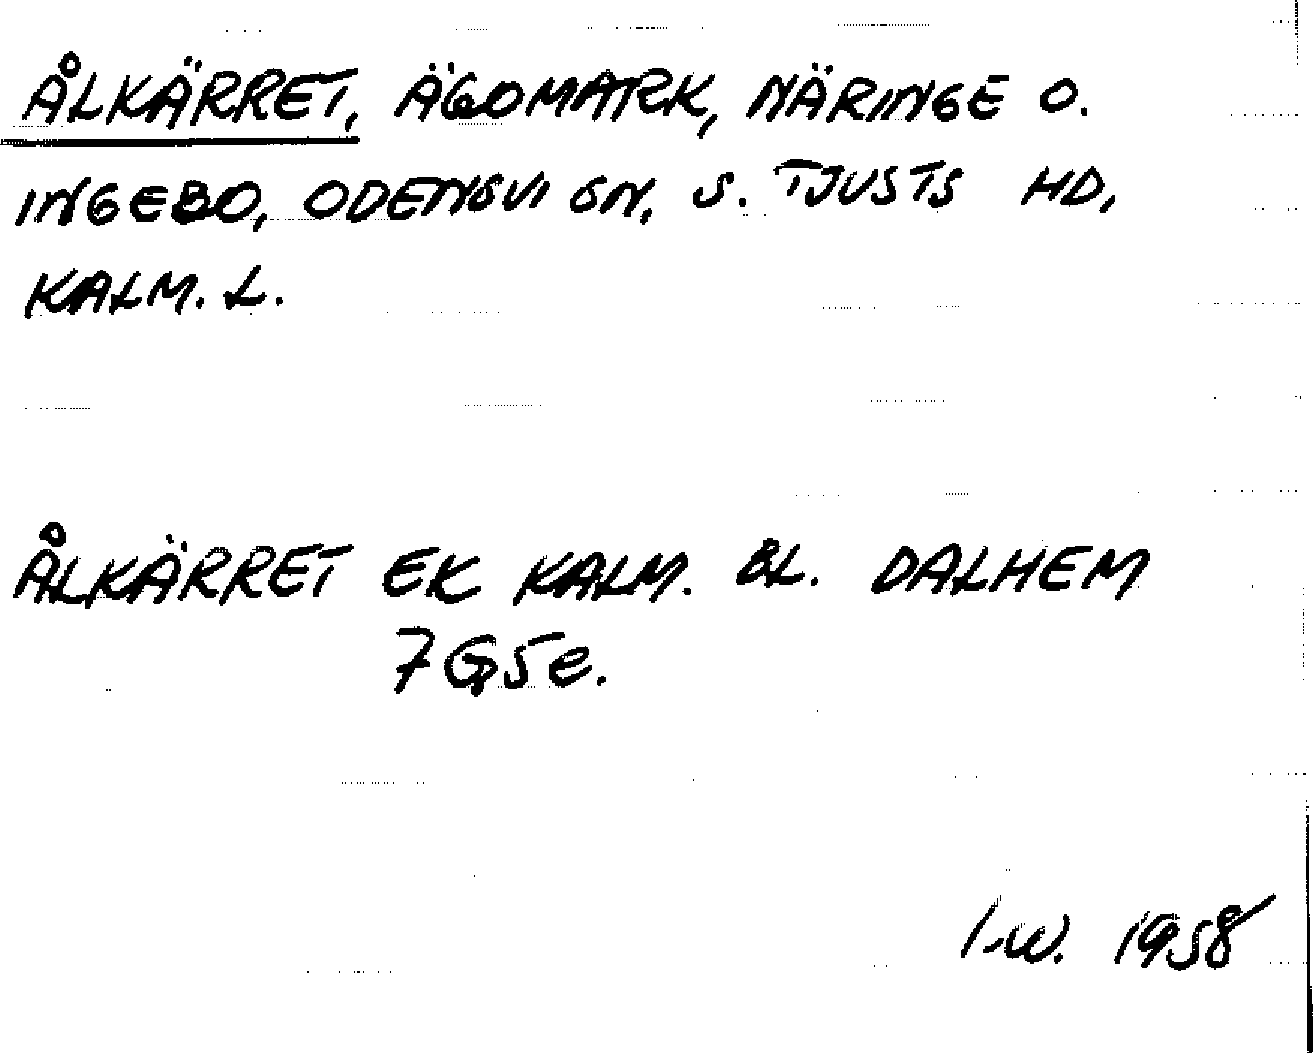 ÅLKÄRRET, ÄGOMARK, NÄRINGE O.
INGEBO, ODENSVI SN, S. TJUSTS HD,
KALM. L.
ÅLKÄRRET EK KALM. BL. DALHEM
7G5e.
I-W. 1958